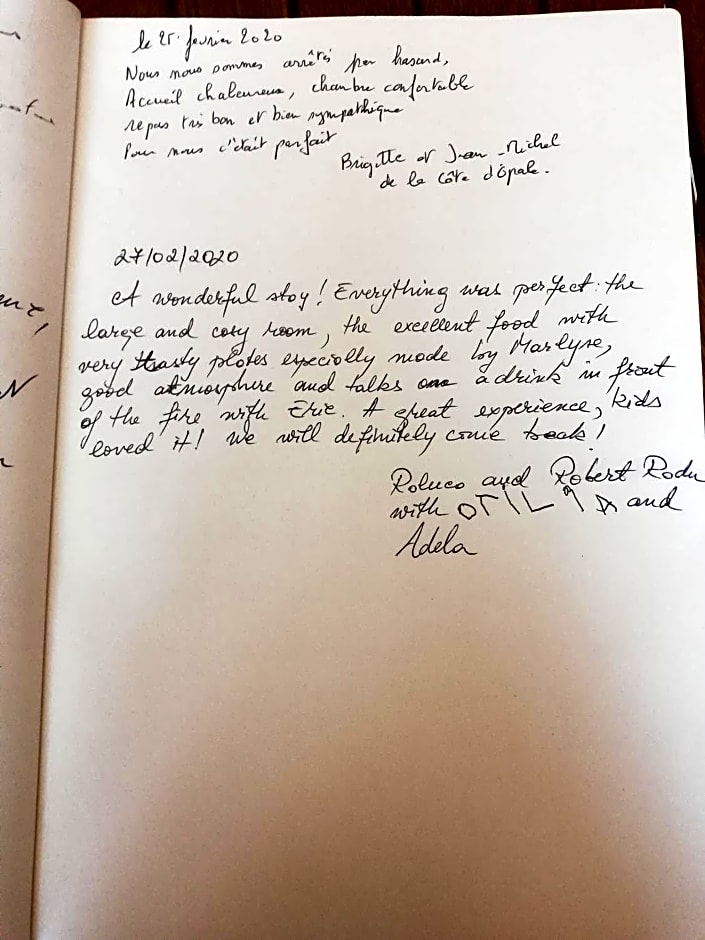 le 25 février 2020
Nous nous sommes arrêtés par hasard,
Accueil chaleureux, chambre confortable
repas très bon et bien sympathique
Pour nous c'était parfait
Brigitte et Jean-Michel
de la Côte d'Opale.
27/02/2020
A wonderful stay! Everything was perfect: the
large and cosy room, the excellent food with
very tasty plates especially made by Marlyse,
good atmosphere and talks a drink in front
of the fire with Eric. A great experience, kids
loved it! We will definitely come back!
Raluca and Robert Radu
with OTILIA and
Adela